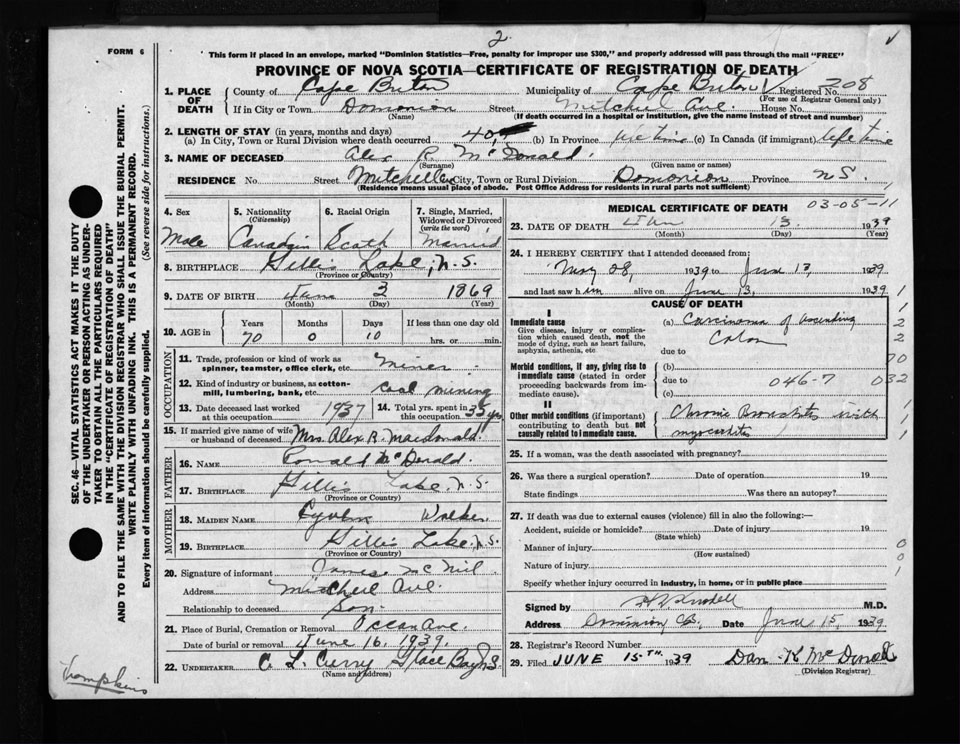 2
FORM 6
This form if placed in an envelope, marked "Dominion Statistics—Free, penalty for improper use $300," and properly addressed will pass through the mail "FREE"
PROVINCE OF NOVA SCOTIA—CERTIFICATE OF REGISTRATION OF DEATH
1. PLACE OF DEATH County of Cape Breton Municipality of Cape Breton Registered No. 208
(For use of Registrar General only)
If in City or Town Dominion Street Mitchell Ave. House No.
(Name) (If death occurred in a hospital or institution, give the name instead of street and number)
2. LENGTH OF STAY (in years, months and days)
(a) In City, Town or Rural Division where death occurred 40 (b) In Province life time (c) In Canada (if immigrant) life time
3. NAME OF DECEASED Alex R. McDonald.
(Surname) (Given name or names)
RESIDENCE No. Street Mitchell City, Town or Rural Division Dominion Province N.S.
(Residence means usual place of abode. Post Office Address for residents in rural parts not sufficient)
4. Sex 5. Nationality (Citizenship) 6. Racial Origin 7. Single, Married, Widowed or Divorced (write the word)
Male Canadian Scotch Married
8. BIRTHPLACE Gillis Lake, N.S.
(Province or Country)
9. DATE OF BIRTH June 3 1869
(Month) (Day) (Year)
10. AGE in Years Months Days If less than one day old
70 0 10 hrs. or min.
OCCUPATION
11. Trade, profession or kind of work as spinner, teamster, office clerk, etc. Miner
12. Kind of industry or business, as cotton-mill, lumbering, bank, etc. Coal mining
13. Date deceased last worked at this occupation 1937 14. Total yrs. spent in this occupation 35 yrs
15. If married give name of wife or husband of deceased Mrs Alex R. Macdonald.
FATHER
16. NAME Ronald McDonald.
17. BIRTHPLACE Gillis Lake, N.S.
(Province or Country)
MOTHER
18. MAIDEN NAME Walker
19. BIRTHPLACE Gillis Lake, N.S.
(Province or Country)
20. Signature of informant James McNeil
Address Mitchell Ave
Relationship to deceased Son.
21. Place of Burial, Cremation or Removal Ocean Ave.
Date of burial or removal June 16, 1939.
22. UNDERTAKER C. L. Curry Glace Bay N.S
(Name and address)
MEDICAL CERTIFICATE OF DEATH 03-05-11
23. DATE OF DEATH June 13 1939
(Month) (Day) (Year)
24. I HEREBY CERTIFY that I attended deceased from:
May 28, 1939 to June 13, 1939
and last saw him alive on June 13, 1939
CAUSE OF DEATH
I
Immediate cause
Give disease, injury or complication which caused death, not the mode of dying, such as heart failure, asphyxia, asthenia, etc
(a) Carcinoma of Ascending Colon
due to
Morbid conditions, if any, giving rise to immediate cause (stated in order proceeding backwards from immediate cause).
(b)
due to 046-7 032
(c)
II
Other morbid conditions (if important) contributing to death but not causally related to immediate cause.
Chronic Bronchitis with myocarditis
25. If a woman, was the death associated with pregnancy?
26. Was there a surgical operation? Date of operation 19
State findings Was there an autopsy?
27. If death was due to external causes (violence) fill in also the following:—
Accident, suicide or homicide? Date of injury 19
(State which)
Manner of injury
(How sustained)
Nature of injury
Specify whether injury occurred in industry, in home, or in public place
Signed by M.D.
Address Dominion C.B. Date June 15, 1939
28. Registrar's Record Number
29. Filed JUNE 15TH 1939 Dan K McDonald
(Division Registrar)
1
2
2
70
1
1
0
0
1
SEC. 46—VITAL STATISTICS ACT MAKES IT THE DUTY
OF THE UNDERTAKER OR PERSON ACTING AS UNDER-
TAKER TO OBTAIN ALL THE PARTICULARS REQUIRED
IN THE "CERTIFICATE OF REGISTRATION OF DEATH"
AND TO FILE THE SAME WITH THE DIVISION REGISTRAR WHO SHALL ISSUE THE BURIAL PERMIT.
WRITE PLAINLY WITH UNFADING INK. THIS IS A PERMANENT RECORD.
Every item of information should be carefully supplied. (See reverse side for instructions.)
Thompkins